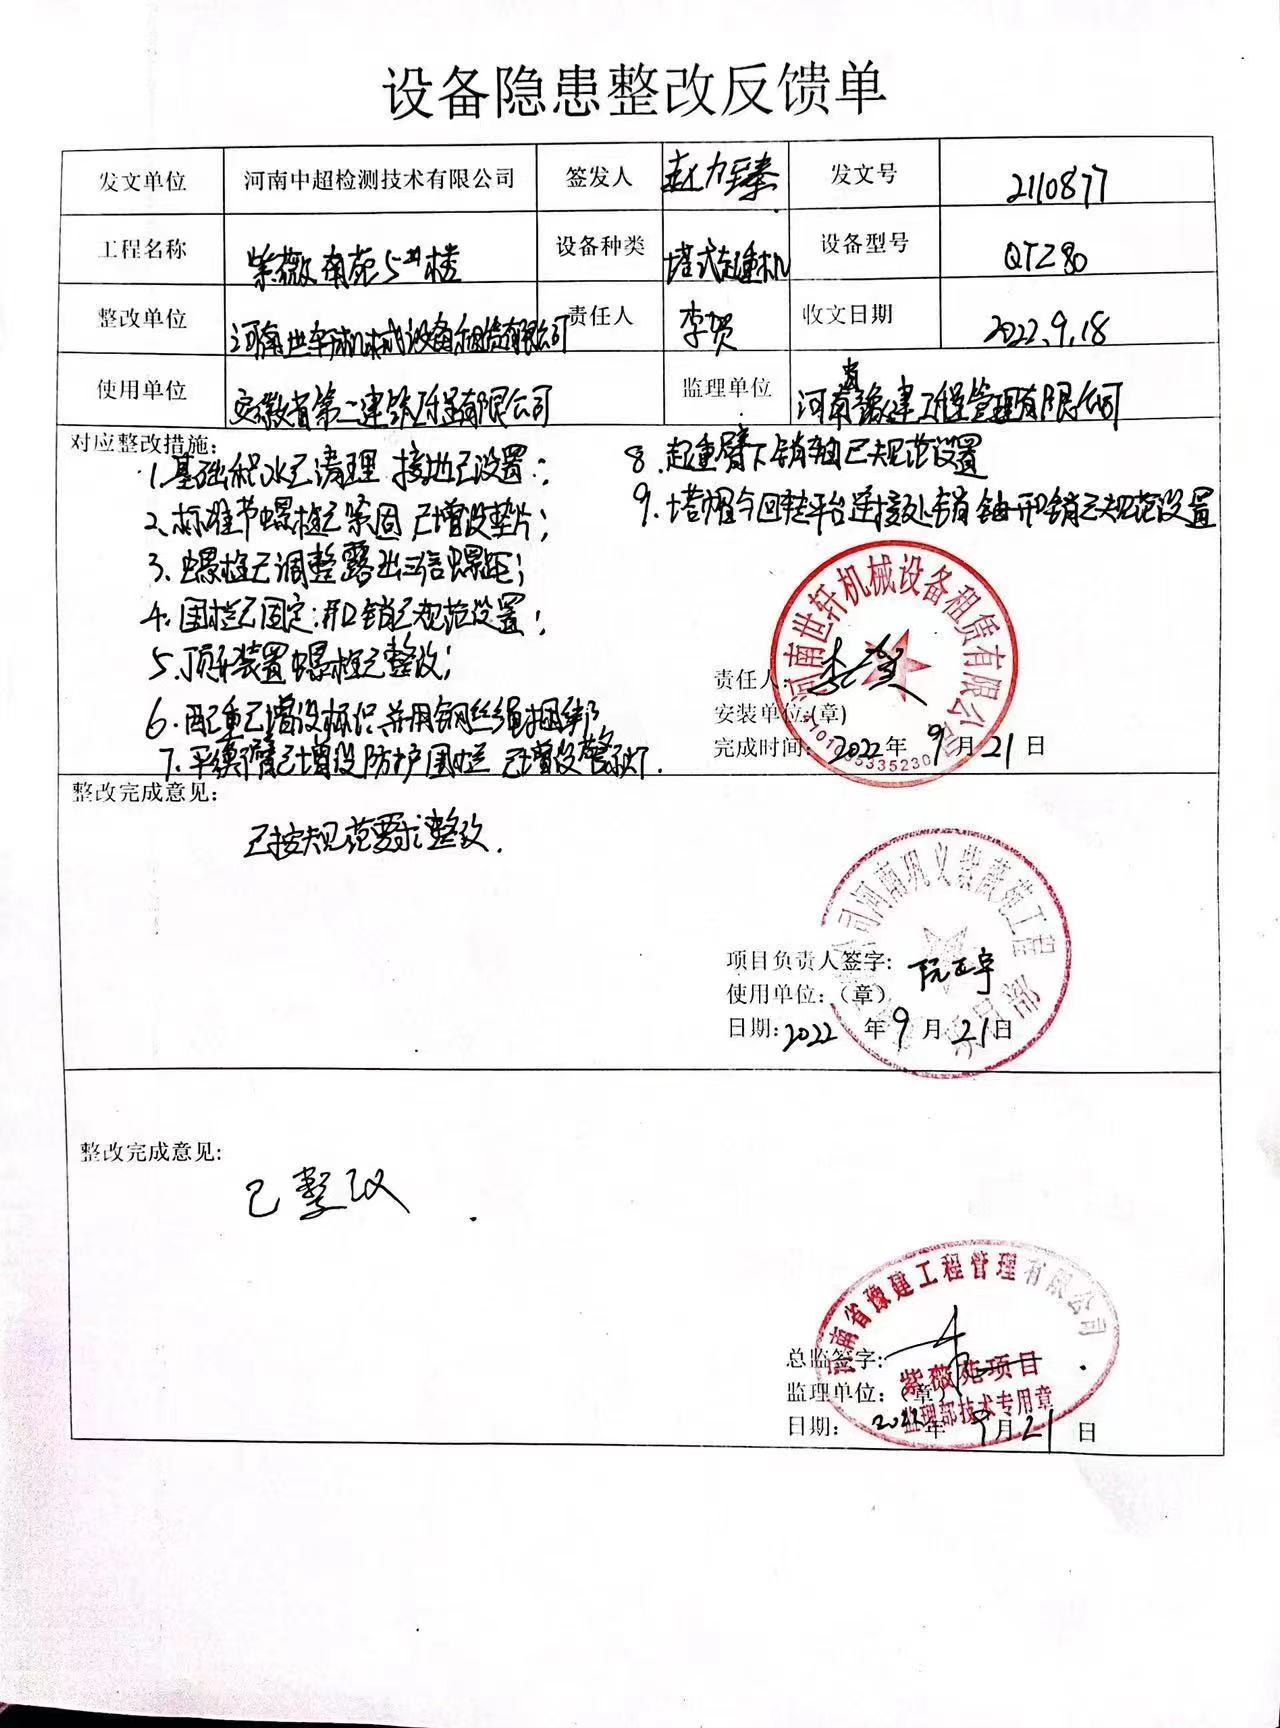 设备隐患整改反馈单
发文单位 河南中超检测技术有限公司 签发人 发文号 2110877
工程名称 紫薇南苑5#楼 设备种类 塔式起重机 设备型号 QTZ80
整改单位 河南世轩机械设备租赁有限公司 责任人 李贺 收文日期 2022.9.18
使用单位 安徽省第二建筑工程有限公司 监理单位 河南省豫建工程管理有限公司
对应整改措施:
1.基础积水已清理 接地已设置;
2.标准节螺栓已紧固 已增设垫片;
3.螺栓已调整露出三倍螺距;
4.围栏已固定;开口销已规范设置;
5.顶升装置螺栓已整改;
6.配重已增设标识并用钢丝绳捆绑
7.平衡臂已增设防护围栏 已增设警示灯.
8.起重臂下销轴已规范设置
9.塔帽今回转平台连接处销轴开口销已规范设置
河南世轩机械设备租赁有限公司
责任人:
安装单位:(章)
完成时间: 2022年9月21日
整改完成意见:
已按规范要求整改.
司河南巩义紫薇苑工程
项目负责人签字: 阮正宇
使用单位:(章)
日期:2022年9月21日
整改完成意见:
已整改
河南省豫建工程管理有限公司
紫薇苑项目
监理部技术专用章
总监签字:
监理单位:(章)
日期: 2022年9月21日